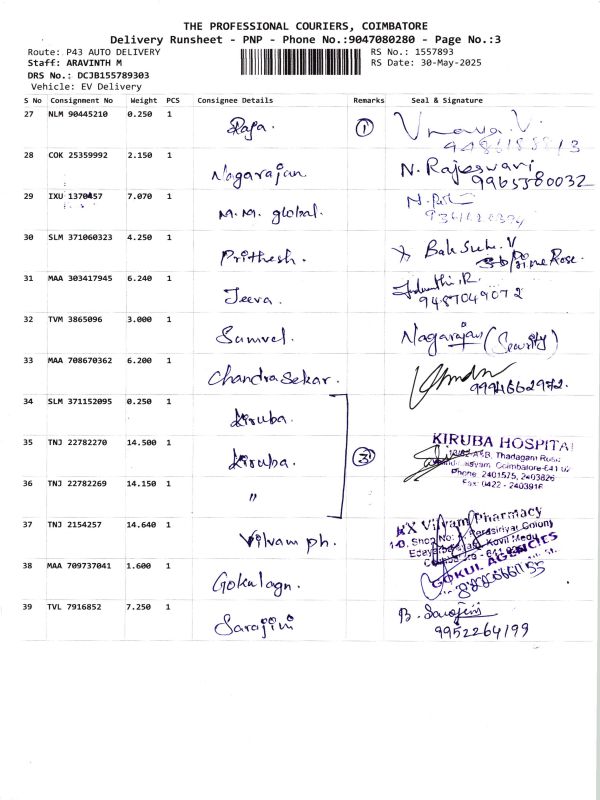 THE PROFESSIONAL COURIERS, COIMBATORE
Delivery Runsheet - PNP - Phone No.:9047080280 - Page No.:3
Route: P43 AUTO DELIVERY RS No.: 1557893
Staff: ARAVINTH M RS Date: 30-May-2025
DRS No.: DCJB155789303
Vehicle: EV Delivery
S No Consignment No Weight PCS Consignee Details Remarks Seal & Signature
27 NLM 90445210 0.250 1 Raja. 1
28 COK 25359992 2.150 1 Nagarajan N. Rajeswari
9965380032
29 IXU 1370457 7.070 1 M.M. global.
30 SLM 371060323 4.250 1 Prithesh.
31 MAA 303417945 6.240 1 Jeeva.
9487049072
32 TVM 3865096 3.000 1 Samuel. Nagarajan (Security)
33 MAA 708670362 6.200 1 Chandrasekar. 9994662972.
34 SLM 371152095 0.250 1 Kiruba.
35 TNJ 22782270 14.500 1 Kiruba. 3 KIRUBA HOSPITAL
Thadagam Road
Coimbatore-641
Phone: 2401575, 2403826
Fax: 0422 - 2403916
36 TNJ 22782269 14.150 1 "
37 TNJ 2154257 14.640 1 Vilvam ph. RX Vilvam Pharmacy
Shop No: Colony
GOKUL AGENCIES
38 MAA 709737041 1.600 1 Gokulagn.
39 TVL 7916852 7.250 1 Sarajini B. Sarojini
9952264199